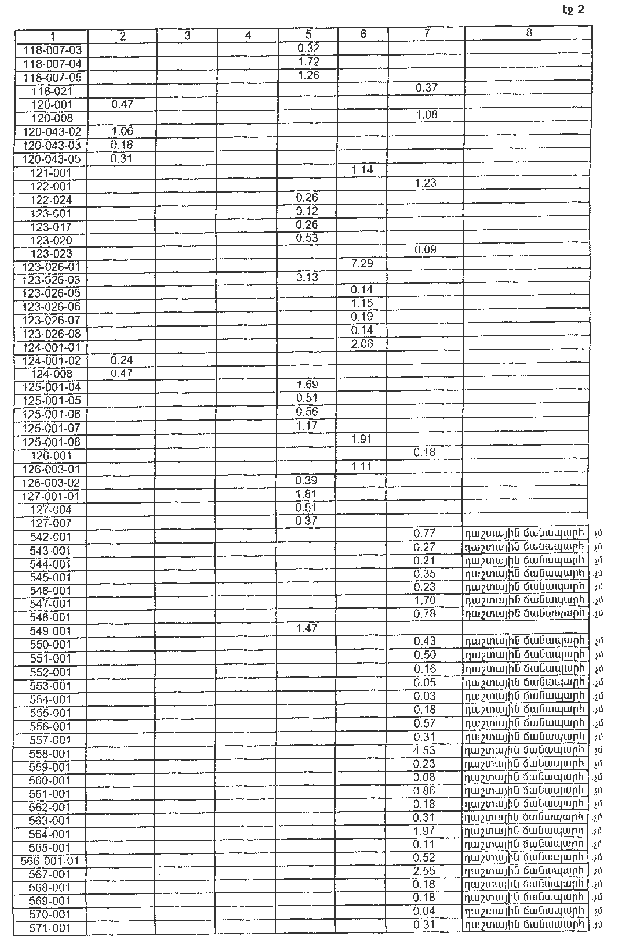 էջ 2
1 2 3 4 5 6 7 8
118-007-03 0.32
118-007-04 1.72
118-007-05 1.26
118-021 0.37
120-001 0.47
120-008 1.08
120-043-02 1.06
120-043-03 0.18
120-043-05 0.31
121-001 1.14
122-001 1.23
122-024 0.26
123-001 0.12
123-017 0.26
123-020 0.53
123-023 0.09
123-026-01 7.29
123-026-03 3.13
123-026-05 0.14
123-026-06 1.15
123-026-07 0.19
123-026-08 0.14
124-001-01 2.06
124-001-02 0.24
124-008 0.47
125-001-04 1.69
125-001-05 0.51
125-001-06 0.56
125-001-07 1.17
125-001-08 1.91
126-001 0.18
126-003-01 1.11
126-003-02 0.39
127-001-01 1.81
127-004 0.51
127-007 0.37
542-001 0.77 դաշտային ճանապարհ
543-001 0.27 դաշտային ճանապարհ
544-001 0.21 դաշտային ճանապարհ
545-001 0.35 դաշտային ճանապարհ
546-001 0.23 դաշտային ճանապարհ
547-001 1.70 դաշտային ճանապարհ
548-001 0.78 դաշտային ճանապարհ
549-001 1.47
550-001 0.43 դաշտային ճանապարհ
551-001 0.50 դաշտային ճանապարհ
552-001 0.16 դաշտային ճանապարհ
553-001 0.05 դաշտային ճանապարհ
554-001 0.03 դաշտային ճանապարհ
555-001 0.18 դաշտային ճանապարհ
556-001 0.57 դաշտային ճանապարհ
557-001 0.31 դաշտային ճանապարհ
558-001 4.53 դաշտային ճանապարհ
559-001 0.23 դաշտային ճանապարհ
560-001 3.08 դաշտային ճանապարհ
561-001 0.86 դաշտային ճանապարհ
562-001 0.18 դաշտային ճանապարհ
563-001 0.31 դաշտային ճանապարհ
564-001 1.97 դաշտային ճանապարհ
565-001 0.11 դաշտային ճանապարհ
566-001-01 0.52 դաշտային ճանապարհ
567-001 2.55 դաշտային ճանապարհ
568-001 0.18 դաշտային ճանապարհ
569-001 0.18 դաշտային ճանապարհ
570-001 0.04 դաշտային ճանապարհ
571-001 0.31 դաշտային ճանապարհ